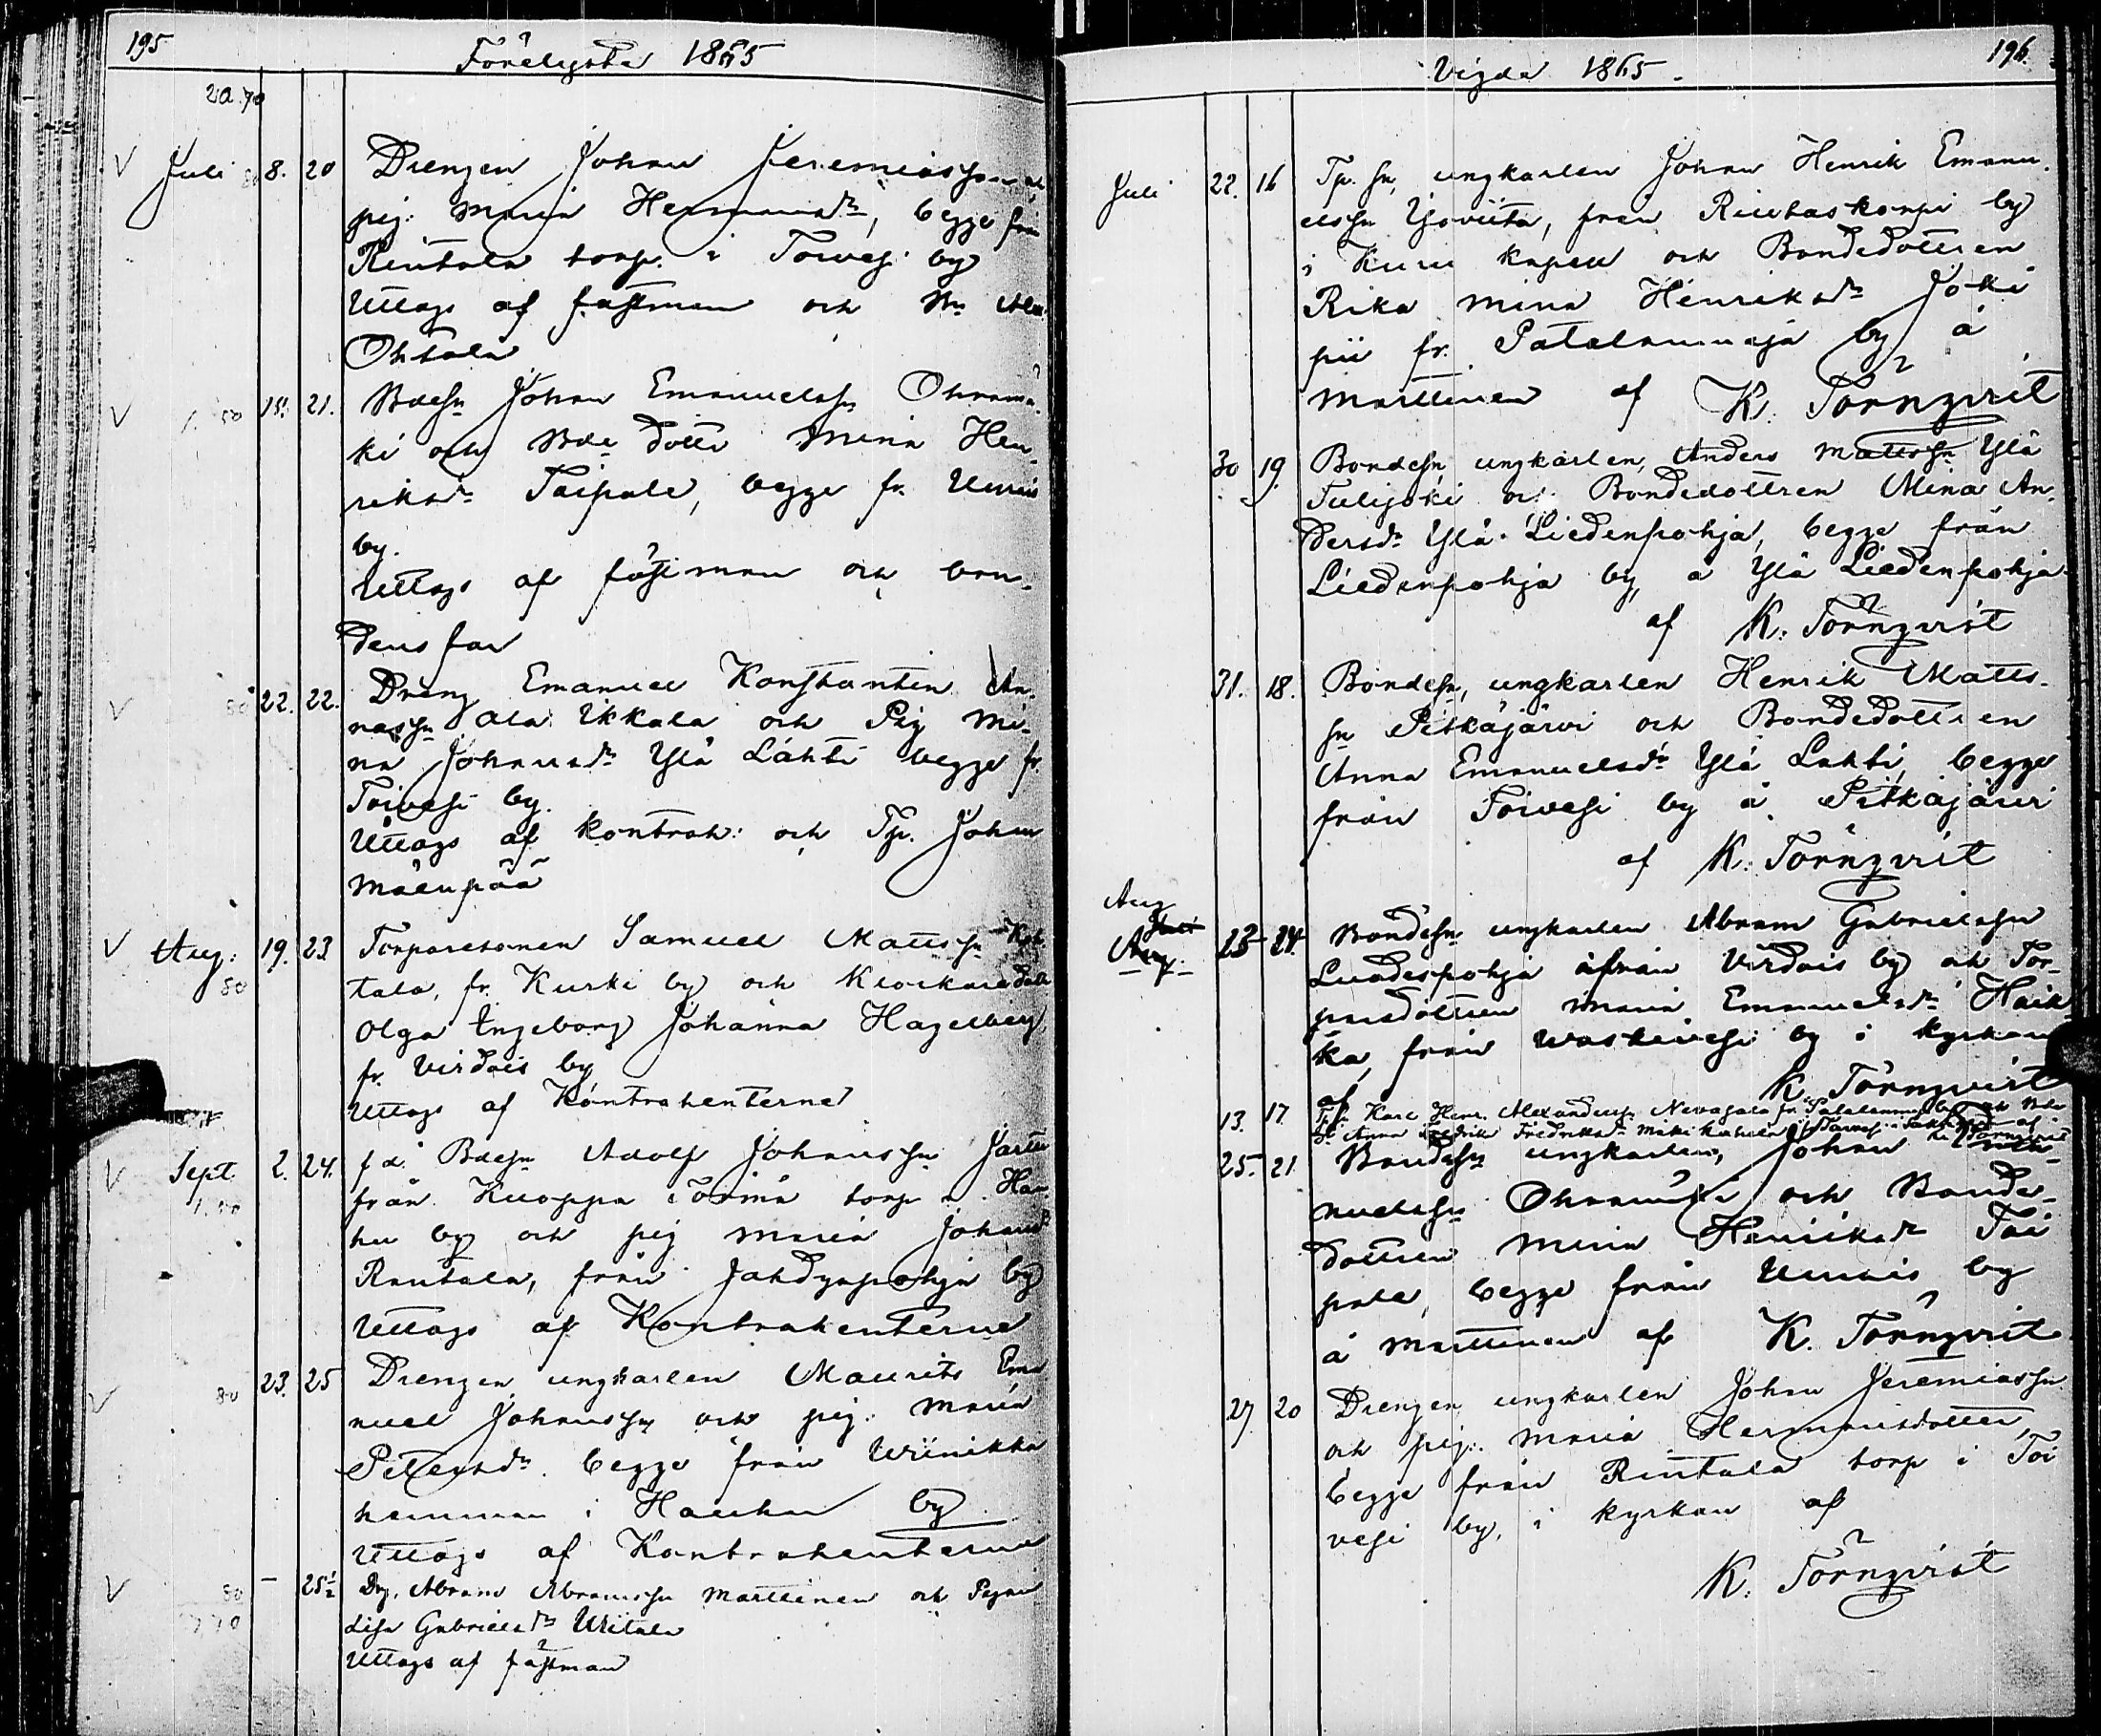 195
Förelysta 1865
20.70
Juli 8. 20 Drengen Johan Jeremiasson och
pig. Maria Hermansdr, begge från
Rintala torp i Toivesi by
Uttogs af fästman och
Ohtola
15. 21. Bdesn Johan Emanuelssn Ohramä-
ki och Bde dottr Mina Hen-
riksdr Taipale, begge fr. Uurais
by.
Uttogs af fästman och bru-
dens far
22. 22. Dreng Emanuel Konstantin An-
nassn Ala Ikkala och Pig Mi-
na Johansdr Ylä Lahti begge fr.
Toivesi by.
Uttogs af kontrah: och Tp. Johan
Mäenpää
Aug: 19. 23 Torparesonen Samuel Mattssn
tala, fr. Kurki by och Klockaredottr
Olga Ingeborg Johanna Hagelberg
fr. Virdois by
80
Uttogs af Kontrahenterne
Sept 2. 24. f.d. Bdesn Adolf Johanssn
från Kuoppa Törmä torp i Hau-
hu by och pig Maria Johansdr
Rautala, från Jähdyspohja by
Uttogs af Kontrahenterne
80 23. 25 Drengen ungkarlen Maurits Ema
nuel Johanssn och pig. Maria
Petersdr begge från Wiinikka
hemman i Hauhu by
Uttogs af Kontrahenterne
80 — 25½ Drg. Abram Abramssn Marttinen och Pigan
Lisa Gabrielsdr Uitala
Uttogs af fästman
196
Vigda 1865.
Juli 22. 16 Tp. sn, ungkarlen Johan Henrik Emanu-
elssn Yoviita, från Riuttaskorpi by
i Kuru kapell och Bondedottren
Rika Mina Henriksdr Joki
pii fr. Patalanmaja by å
Marttinen af K. Törnqvist
30 19. Bondesn ungkarlen, Anders Mattssn Ylä
Tulijoki och Bondedottren Mina An-
dersdr Ylä Liedenpohja, begge från
Liedenpohja by, å Ylä Liedenpohja
af K. Törnqvist
31. 18. Bondesn, ungkarlen Henrik Matts-
sn Pitkäjärvi och Bondedottren
Anna Emanuelsdr Ylä Lahti, begge
från Toivesi by å Pitkäjärvi
af K. Törnqvist
Aug
Aug. 23 24. Bondesn ungkarlen Abram Gabrielssn
Luodespohja ifrån Virdois by och Tor-
paredottren Maria Emanuelsdr Haik
ka, från Waskivesi by i kyrkan
af K. Törnqvist
13. 17 Tp. s. Karl Henr. Alexanderss. Nevasalo fr. Patalanmaja by och Bde
Anna Fredrika Fredriksdr Mäki af
K. Törnqvist
25. 21 Bondesn ungkarlen, Johan Ema-
nuelssn Ohramäki och Bonde-
dottren Mina Henriksdr Tai
pale, begge från Uurais by
å Marttinen af K. Törnqvist
27 20 Drengen ungkarlen Johan Jeremiassn
och pig. Maria Hermansdotter,
begge från Rintala torp i Toi
vesi by, i kyrkan af
K. Törnqvist